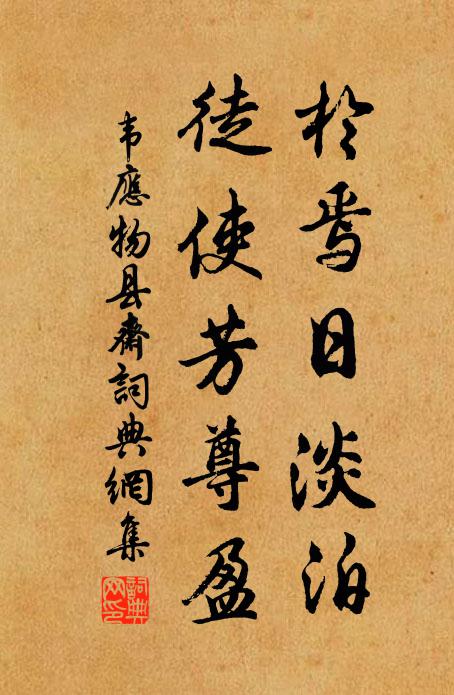 於焉日淡泊
徒使芳尊盈
韦應物县齋詞典網集
詞典網印